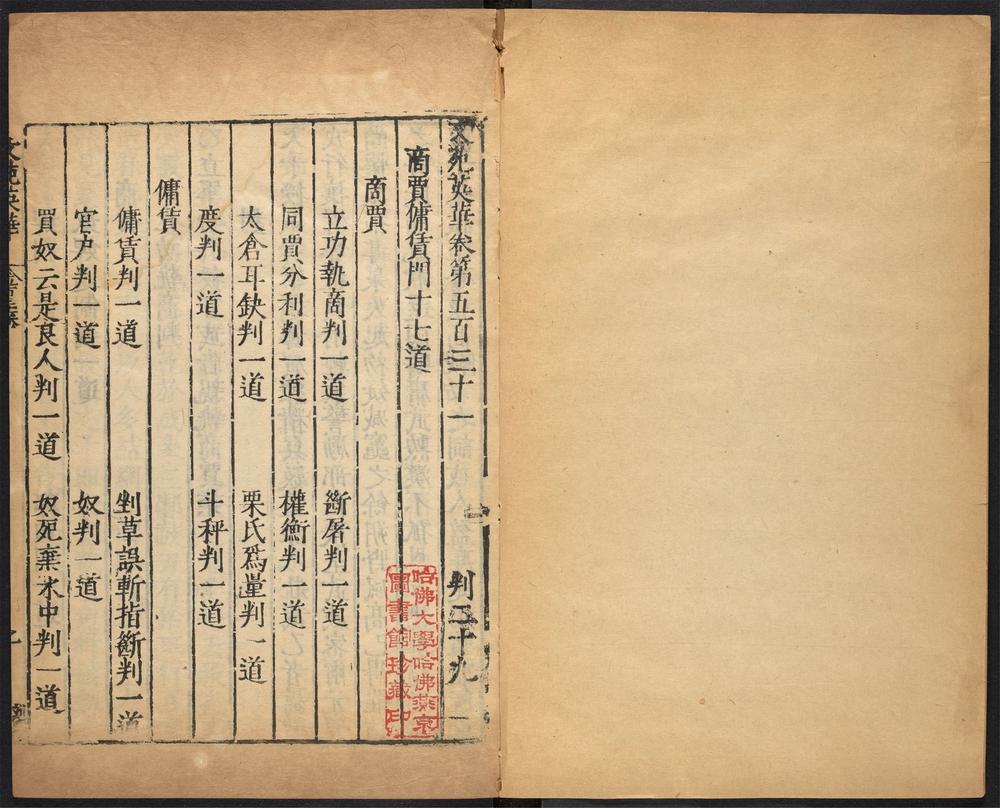 文苑英華卷第五百三十一 判二十九
商賈傭賃門十七道
商賈
立功執商判一道 斷屠判一道
同賈分利判一道 權衡判一道
太倉耳缺判一道 栗氏爲量判一道
度判一道 斗秤判一道
傭賃
傭賃判一道 剉草誤斬指斷判一道
官户判一道 奴判一道
買奴云是良人判一道 奴死棄水中判一道
文苑英華
哈佛大學哈佛燕京圖書館珍藏印